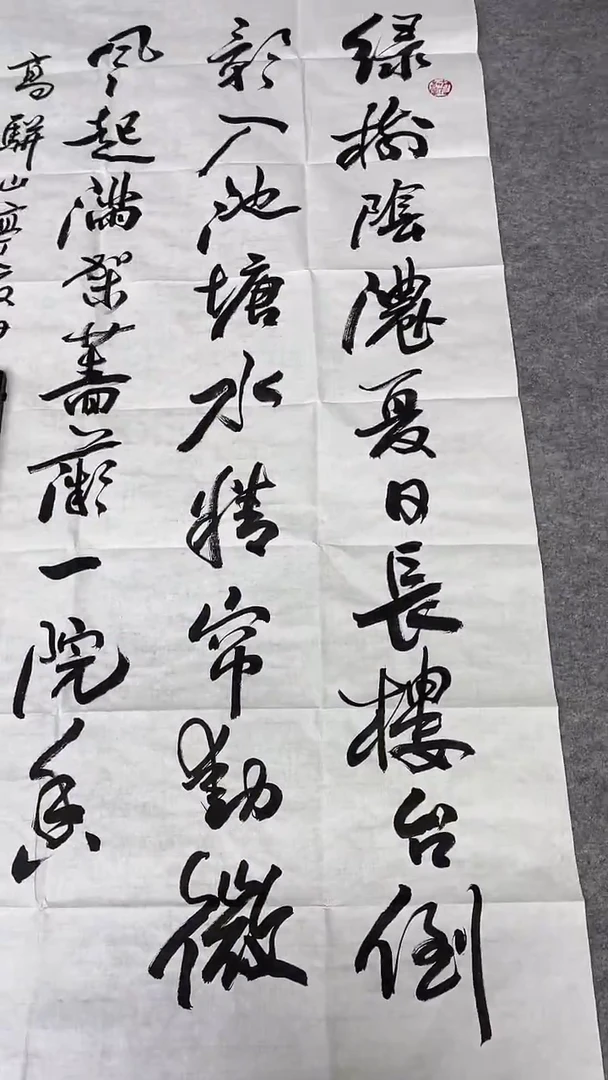 绿樹陰濃夏日長樓台倒
影入池塘水精帘動微
风起滿架薔薇一院香
高駢山亭夏日